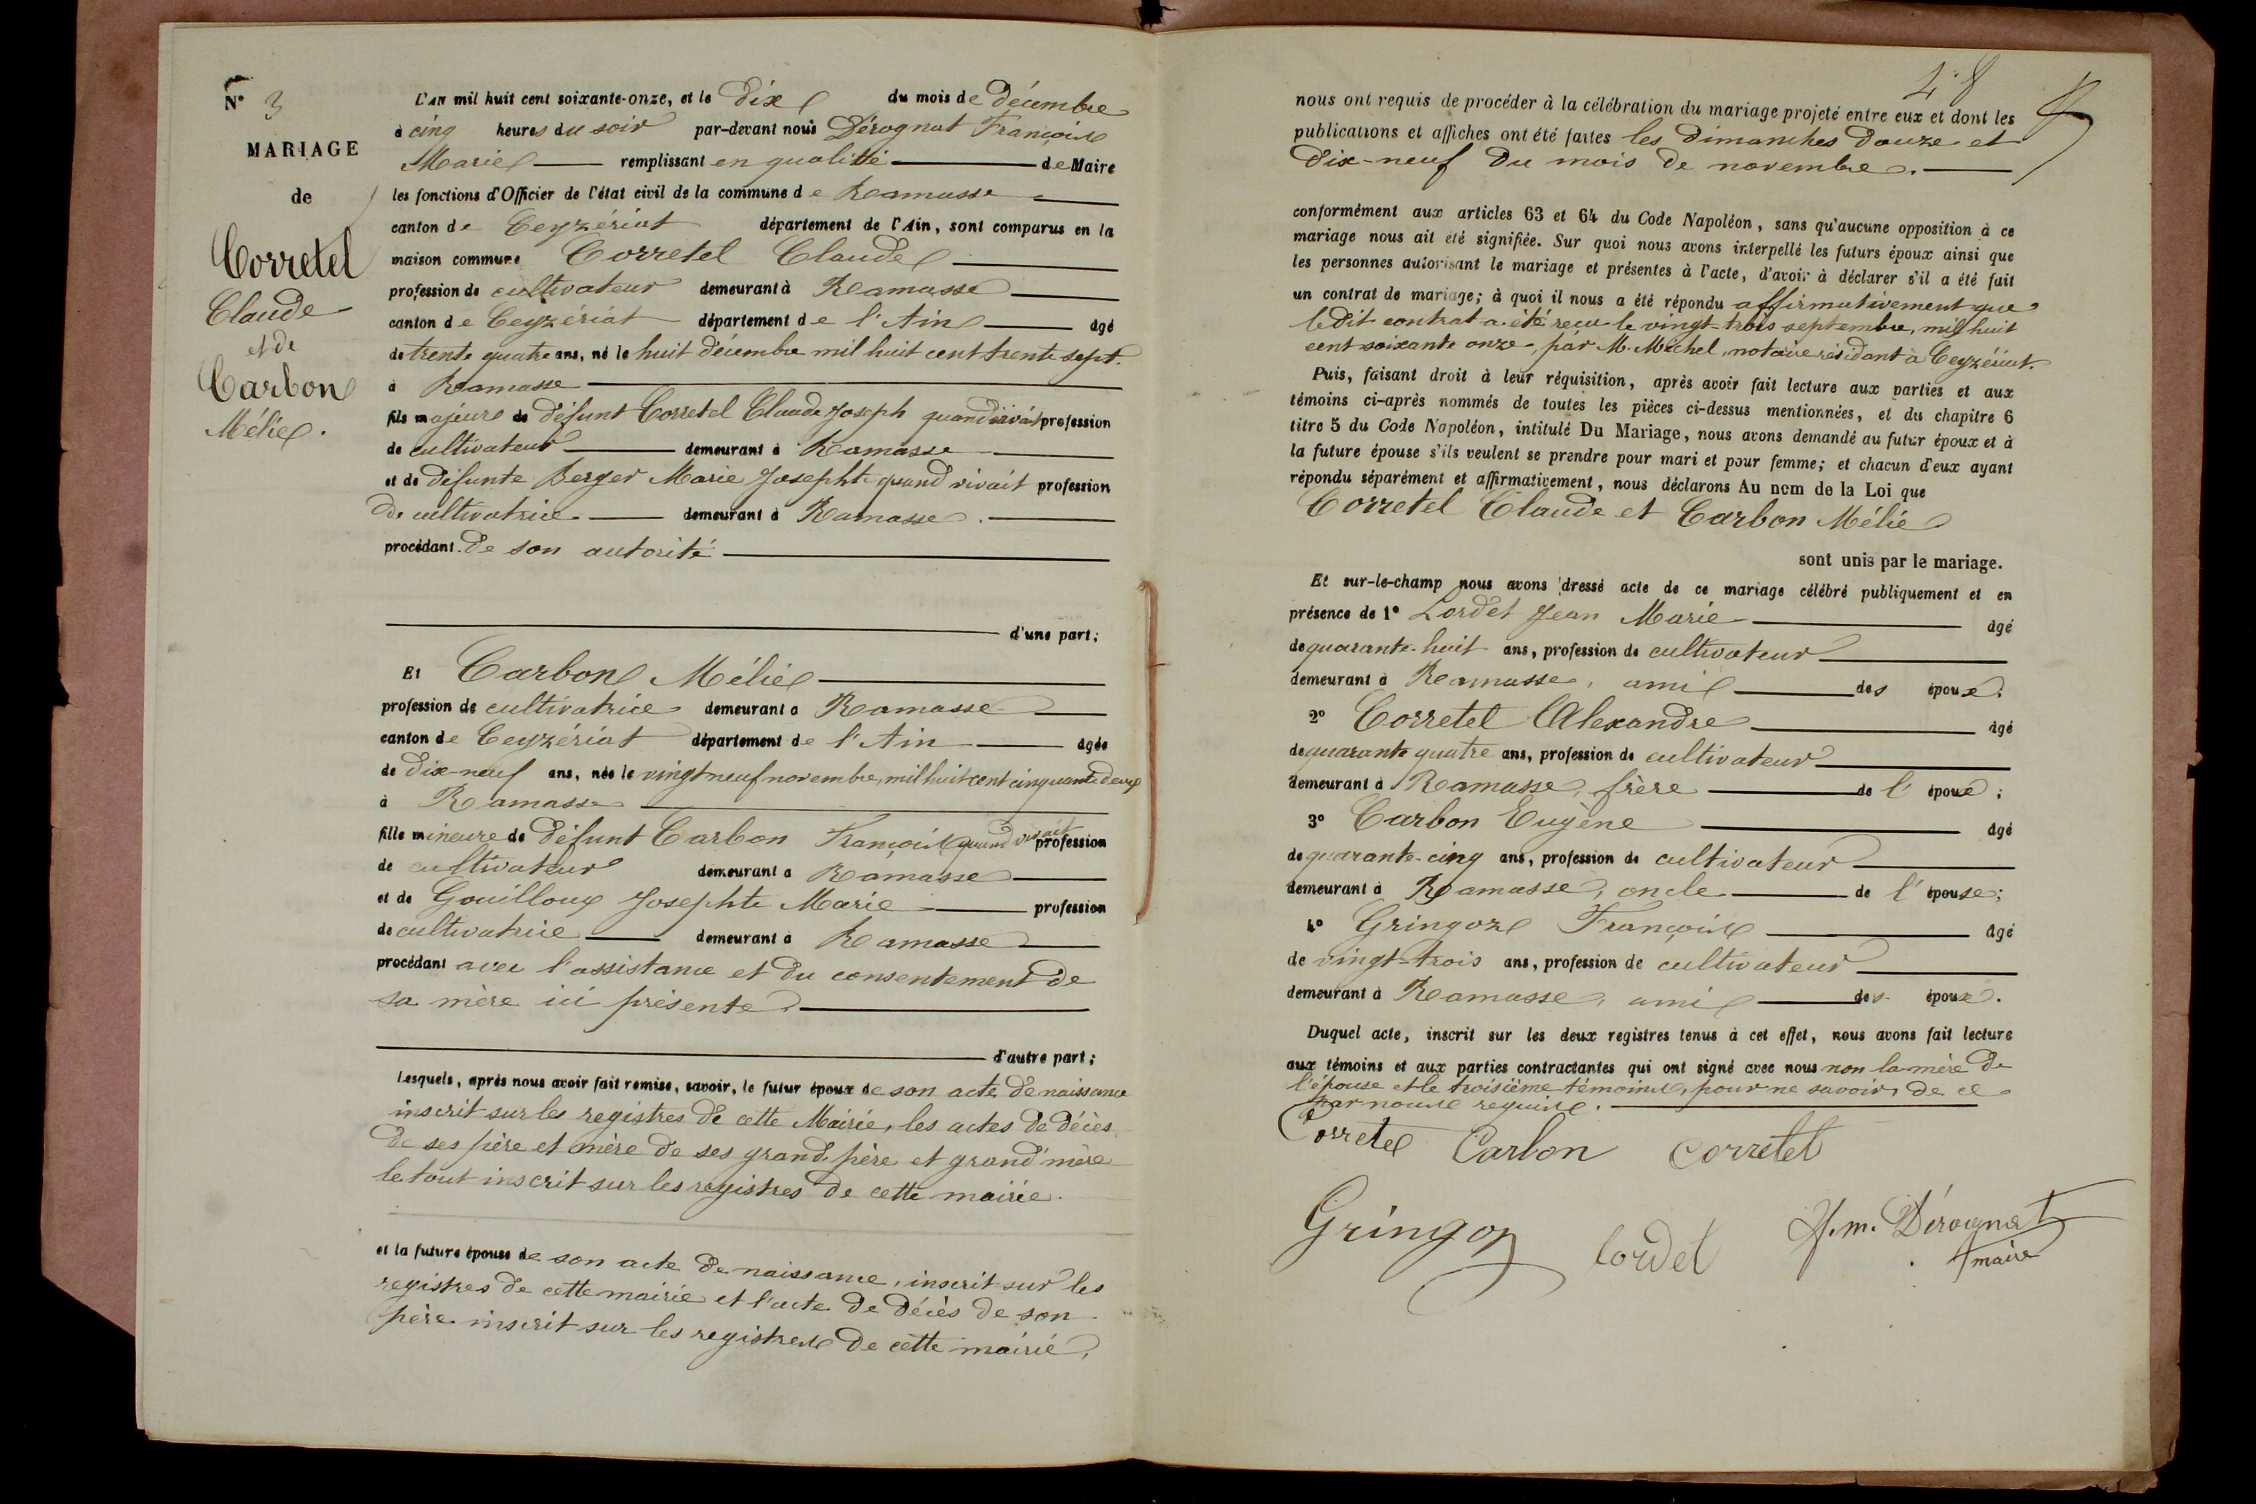 N° 3
MARIAGE
de
Corretel
Claude
et de
Carbon
Mélie.
L'AN mil huit cent soixante-onze, et le dix du mois de Décembre
à cinq heures du soir par-devant nous Dérognat François
Marie remplissant en qualité de Maire
les fonctions d'Officier de l'état civil de la commune de Ramasse
canton de Ceyzériat département de l'Ain, sont comparus en la
maison commune Corretel Claude
profession de cultivateur demeurant à Ramasse
canton de Ceyzériat département de l'Ain âgé
de trente quatre ans, né le huit décembre mil huit cent trente sept.
à Ramasse
fils majeur de défunt Corretel Claude Joseph quand vivait profession
de cultivateur demeurant à Ramasse
et de défunte Berger Marie Josephte quand vivait profession
de cultivatrice demeurant à Ramasse.
procédant de son autorité
d'une part;
Et Carbon Mélie
profession de cultivatrice demeurant à Ramasse
canton de Ceyzériat département de l'Ain âgée
de dix-neuf ans, née le vingt neuf novembre, mil huit cent cinquante deux
à Ramasse
fille mineure de défunt Carbon François quand vivait profession
de cultivateur demeurant à Ramasse
et de Gouilloux Josephte Marie profession
de cultivatrice demeurant à Ramasse
procédant avec l'assistance et du consentement de
sa mère ici présente.
d'autre part;
Lesquels, après nous avoir fait remise, savoir, le futur époux de son acte de naissance
inscrit sur les registres de cette Mairie, les actes de décès
de ses père et mère de ses grand père et grand'mère
le tout inscrit sur les registres de cette mairie.
et la future épouse de son acte de naissance, inscrit sur les
registres de cette mairie et l'acte de décès de son
père inscrit sur les registres de cette mairie.
48
nous ont requis de procéder à la célébration du mariage projeté entre eux et dont les
publications et affiches ont été faites les dimanches douze et
dix-neuf du mois de novembre.
conformément aux articles 63 et 64 du Code Napoléon, sans qu'aucune opposition à ce
mariage nous ait été signifiée. Sur quoi nous avons interpellé les futurs époux ainsi que
les personnes autorisant le mariage et présentes à l'acte, d'avoir à déclarer s'il a été fait
un contrat de mariage; à quoi il nous a été répondu affirmativement que
ledit contrat a été reçu le vingt-trois septembre, mil huit
cent soixante onze, par M. Michel, notaire résidant à Ceyzériat.
Puis, faisant droit à leur réquisition, après avoir fait lecture aux parties et aux
témoins ci-après nommés de toutes les pièces ci-dessus mentionnées, et du chapitre 6
titre 5 du Code Napoléon, intitulé Du Mariage, nous avons demandé au futur époux et à
la future épouse s'ils veulent se prendre pour mari et pour femme; et chacun d'eux ayant
répondu séparément et affirmativement, nous déclarons Au nom de la Loi que
Corretel Claude et Carbon Mélie
sont unis par le mariage.
Et sur-le-champ nous avons dressé acte de ce mariage célébré publiquement et en
présence de 1° Lordet Jean Marie âgé
de quarante-huit ans, profession de cultivateur
demeurant à Ramasse, ami des époux.
2° Corretel Alexandre âgé
de quarante quatre ans, profession de cultivateur
demeurant à Ramasse, frère de l'époux;
3° Carbon Eugène âgé
de quarante-cinq ans, profession de cultivateur
demeurant à Ramasse, oncle de l'épouse;
4° Gringoz François âgé
de vingt-trois ans, profession de cultivateur
demeurant à Ramasse, ami des époux.
Duquel acte, inscrit sur les deux registres tenus à cet effet, nous avons fait lecture
aux témoins et aux parties contractantes qui ont signé avec nous non la mère de
l'épouse et le troisième témoins, pour ne savoir, de ce
par nous requis.
Corretel Carbon Corretel
Gringoz Lordet f.m. Dérognat
maire